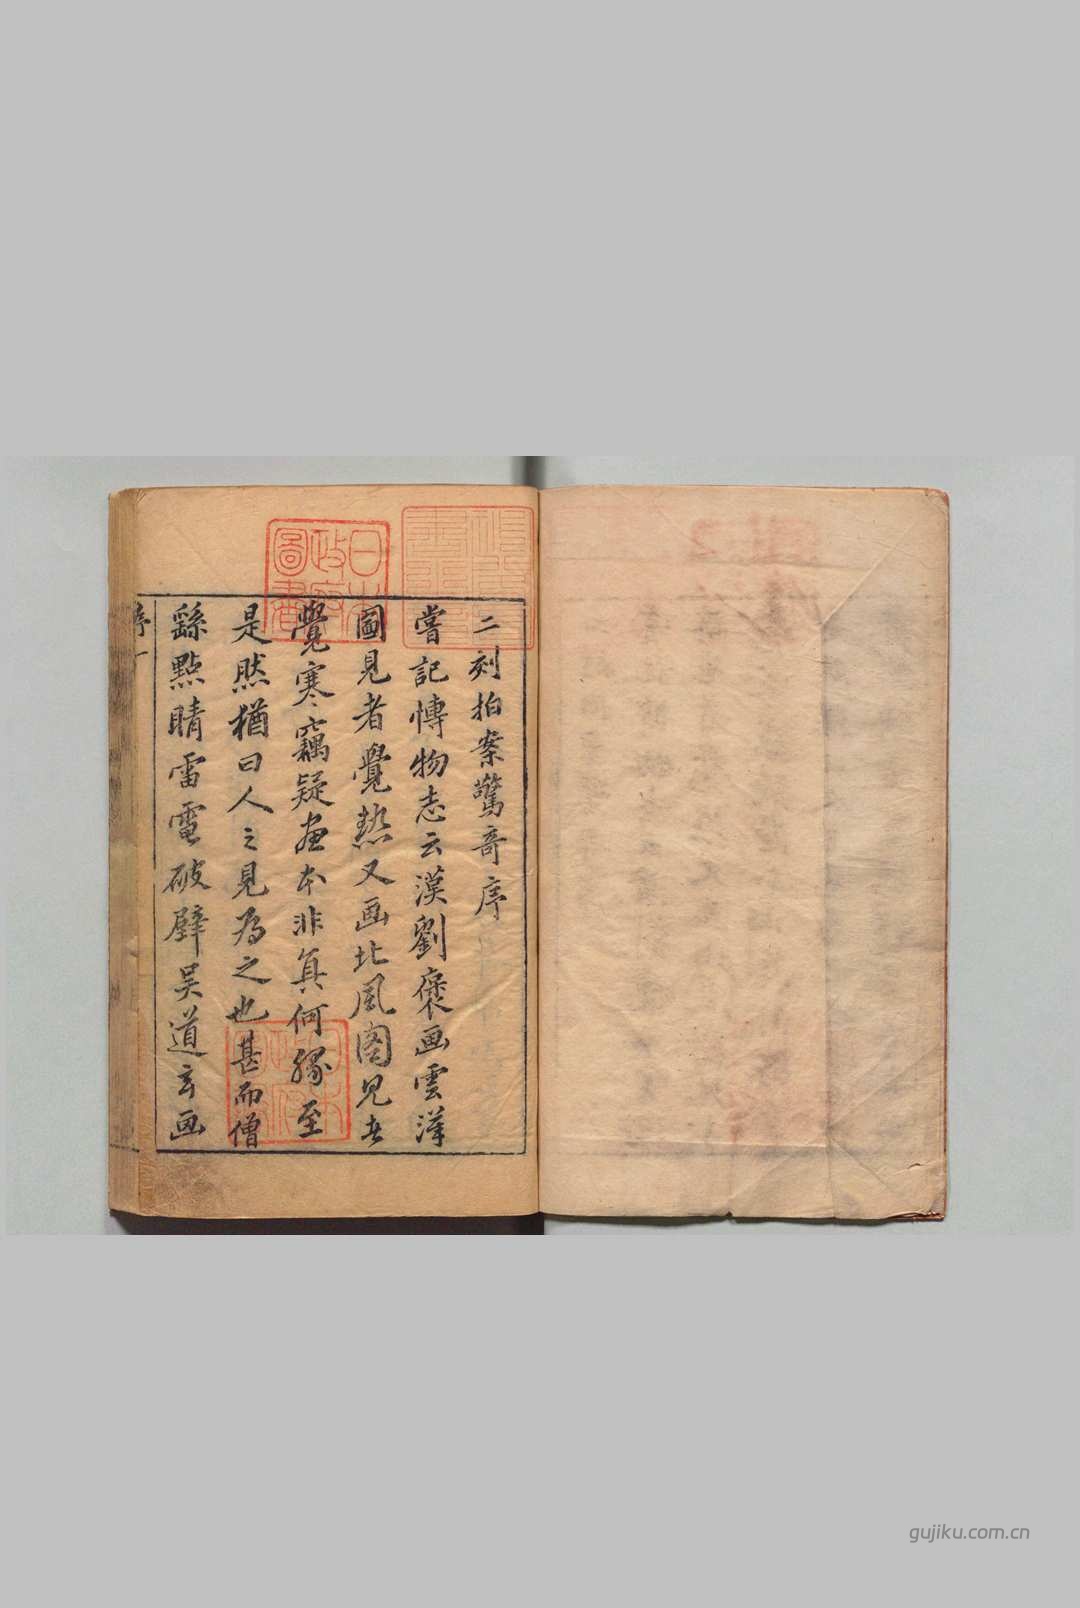 二刻拍案驚奇序
嘗記愽物志云漢劉褒画雲漢
圖見者覺热又画北風图見者
覺寒竊疑畫本非真何緣至
是然猶曰人之見為之也甚而僧
繇點睛雷電破壁吴道玄画
序一
日本
政府
圖書
gujiku.com.cn